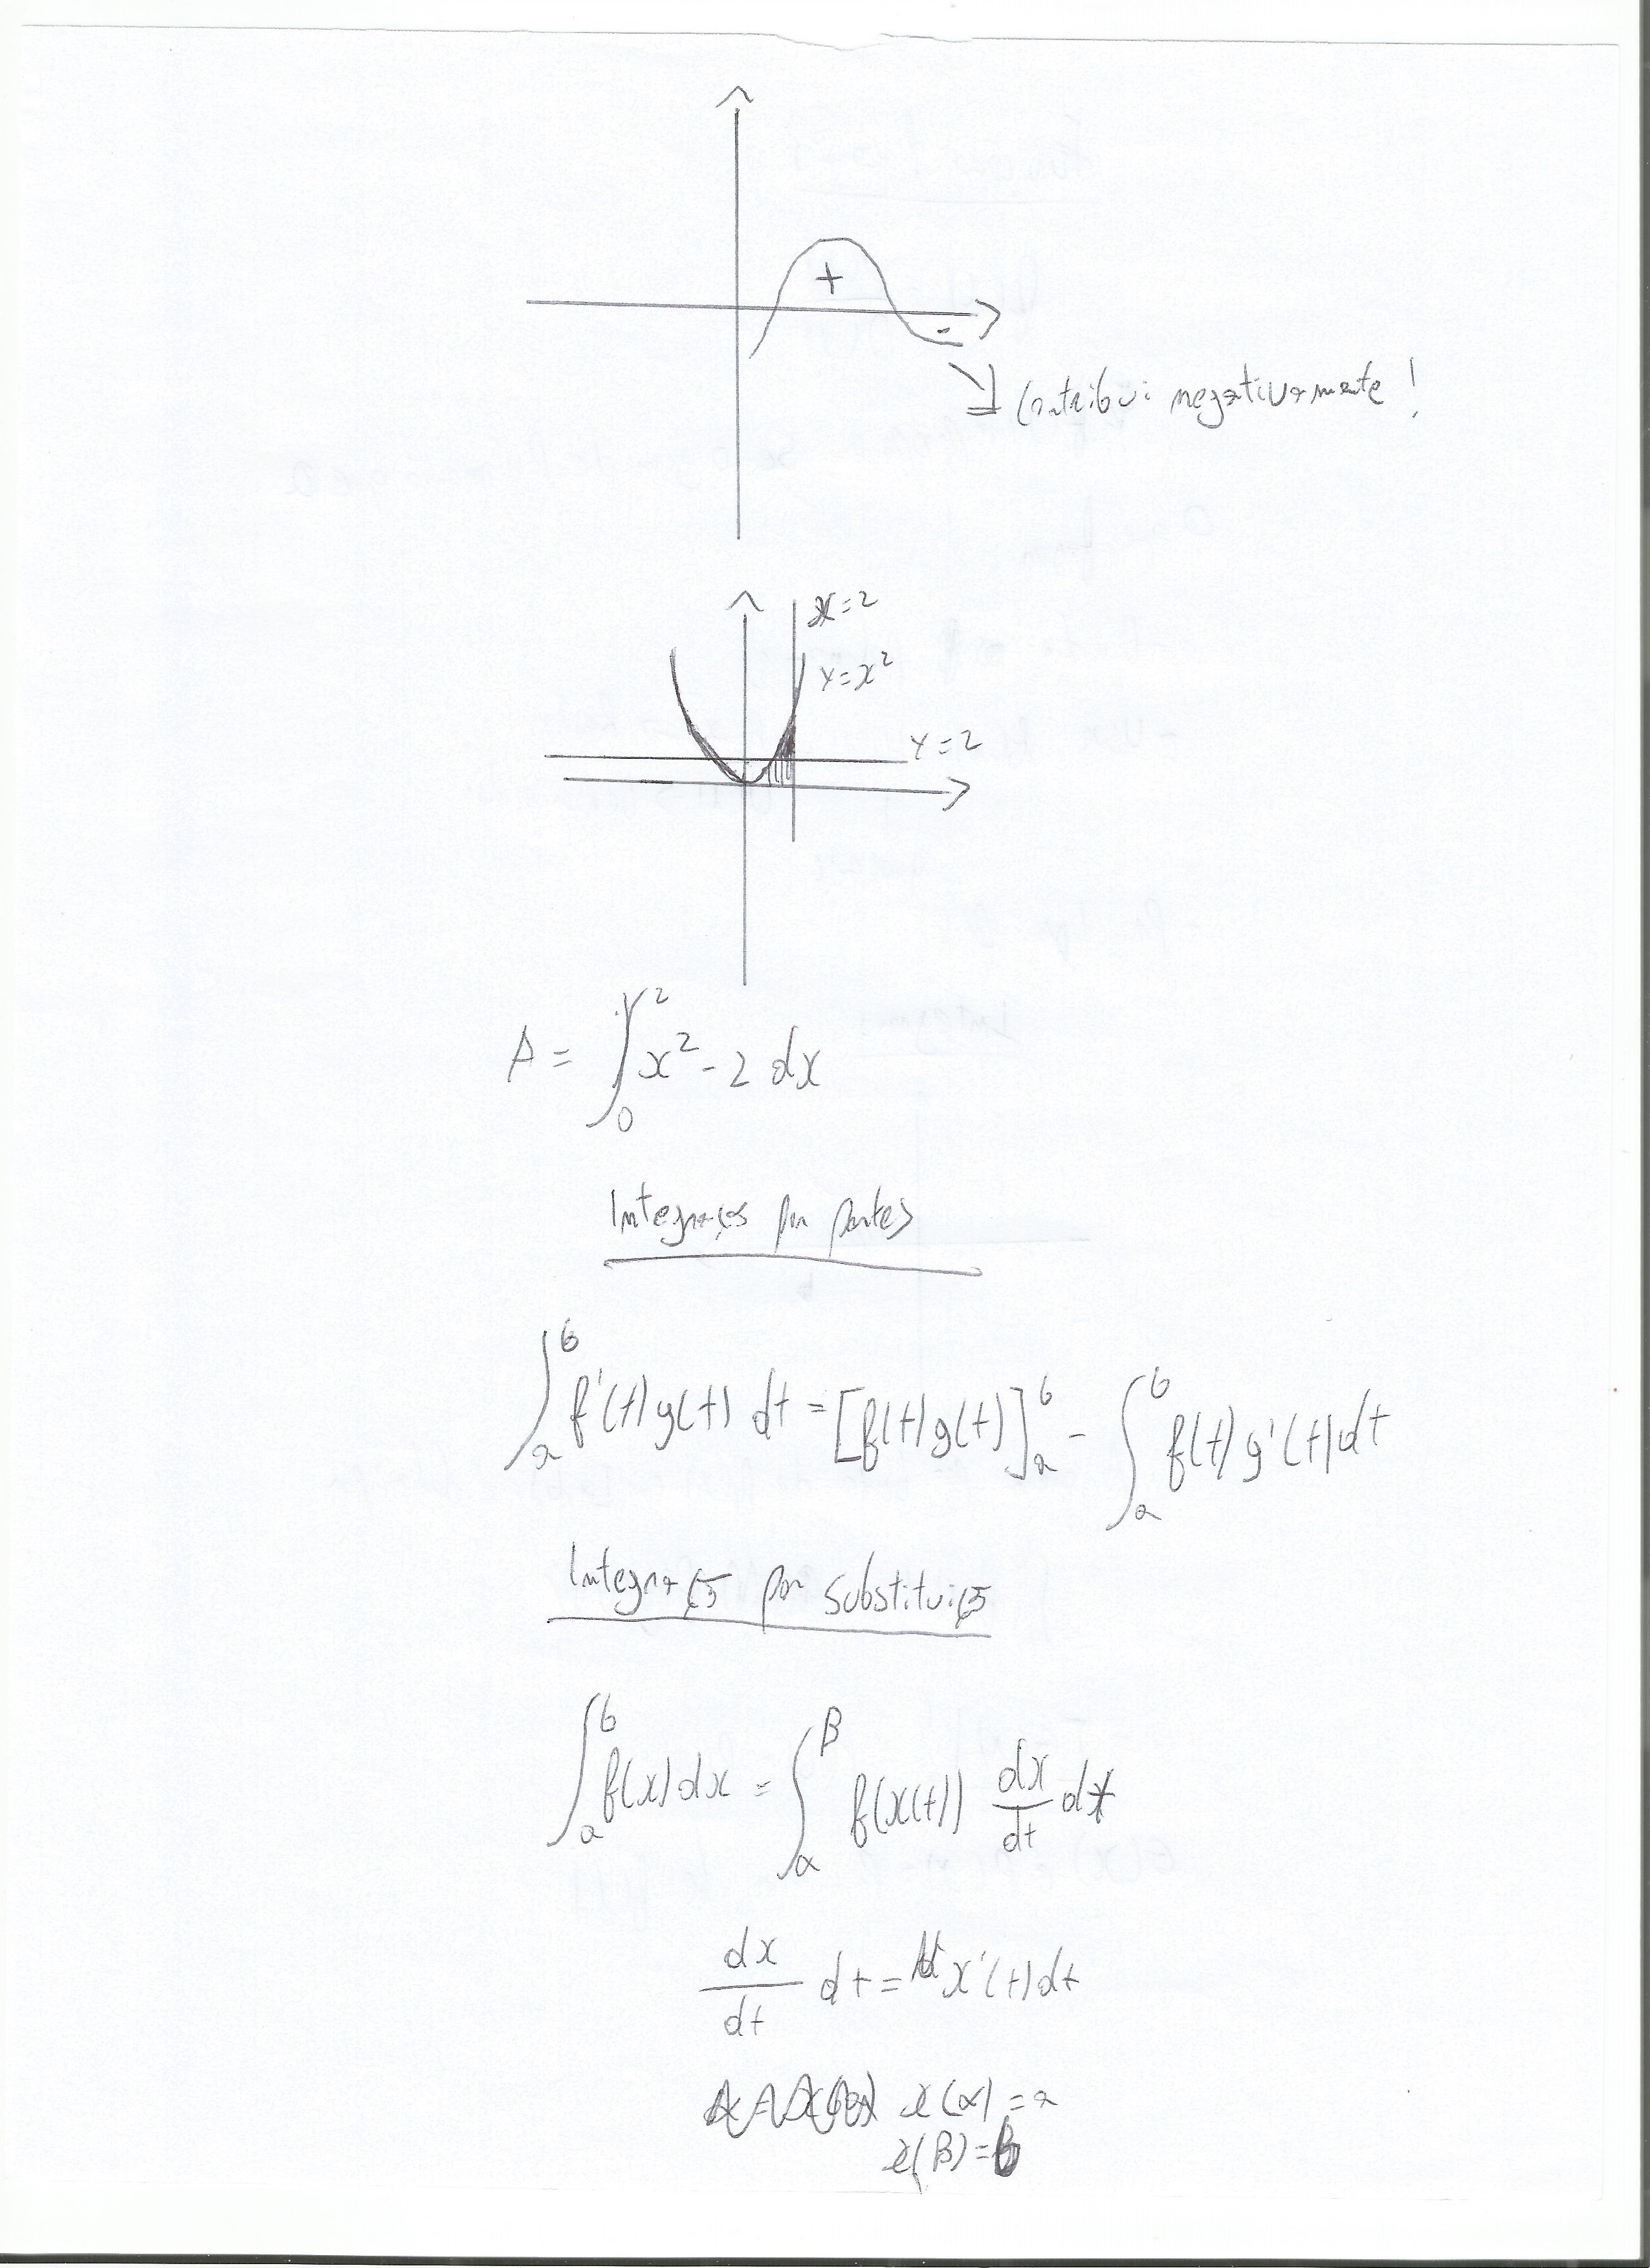 +
-
Contribui negativamente!
x=2
y=x²
y=2
A = ∫₀² x² - 2 dx
Integração por partes
∫ₐᵇ f'(t) g(t) dt = [f(t) g(t)]ₐᵇ - ∫ₐᵇ f(t) g'(t) dt
Integração por substituição
∫ₐᵇ f(x) dx = ∫_α^β f(x(t)) dx/dt dt
dx/dt dt = x'(t) dt
x(α) = a
x(β) = b